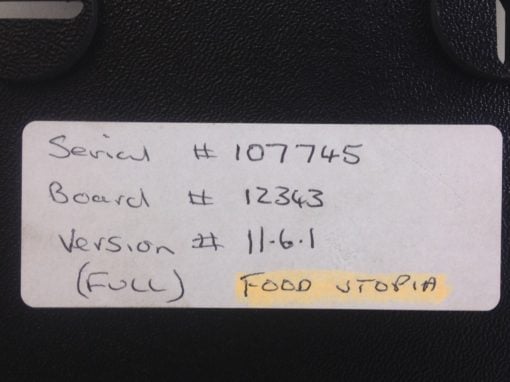 Serial # 107745
Board # 12343
Version # 11.6.1
(FULL) FOOD UTOPIA